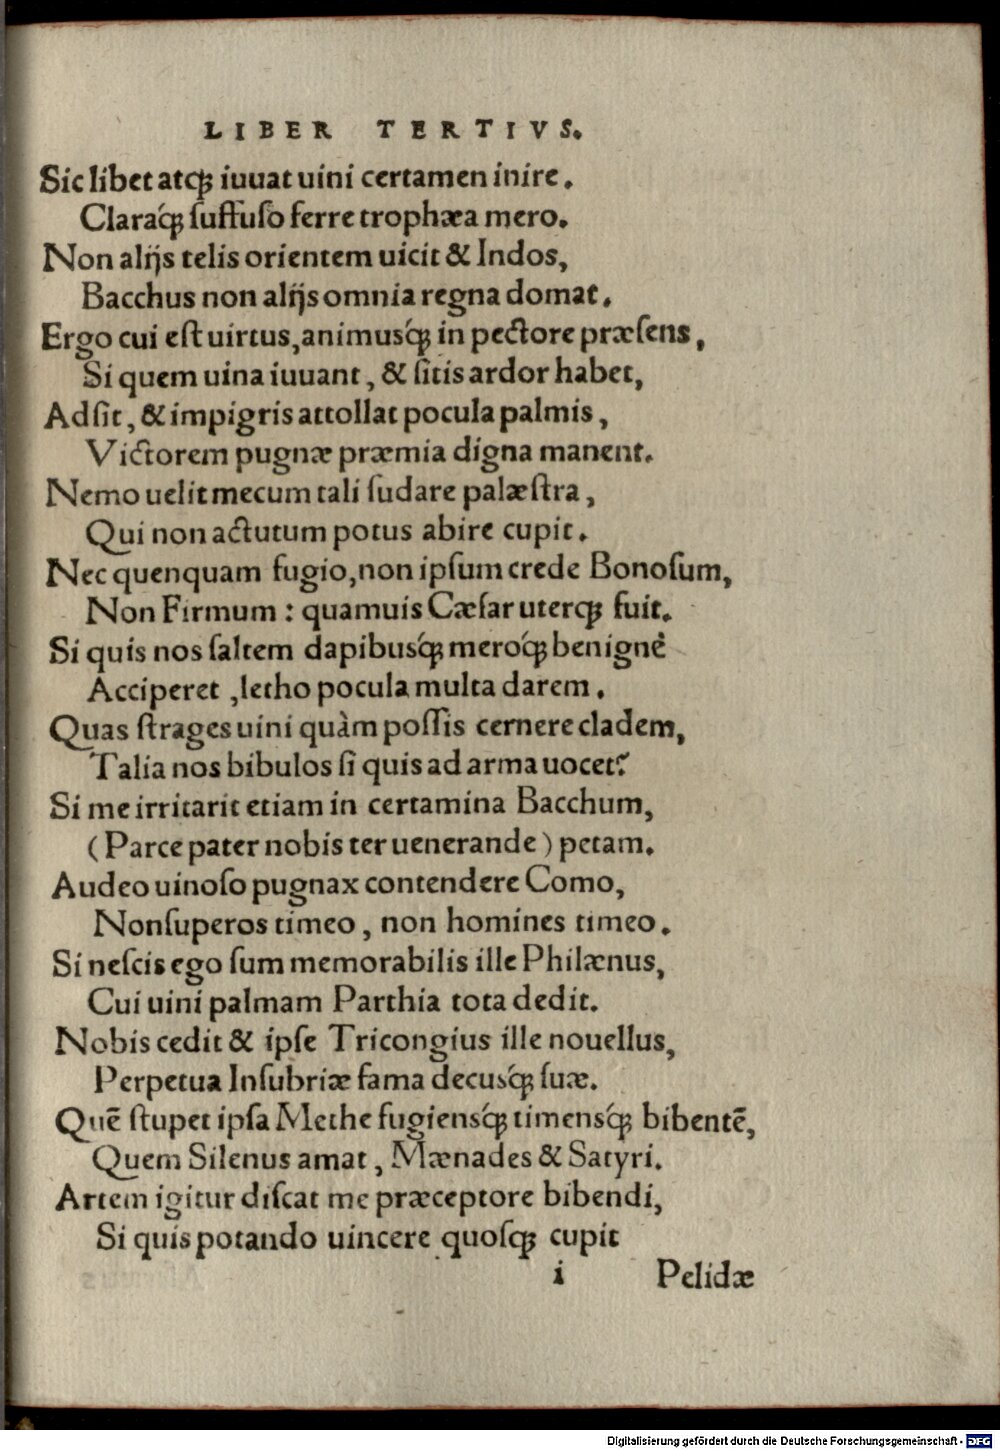 LIBER TERTIVS.
Sic libet atqꝫ iuuat uini certamen inire.
Claraq́ꝫ ſuffuſo ferre trophæa mero.
Non alijs telis orientem uicit & Indos,
Bacchus non alijs omnia regna domat.
Ergo cui eſt uirtus, animusq́ꝫ in pectore præſens,
Si quem uina iuuant, & ſitis ardor habet,
Adſit, & impigris attollat pocula palmis,
Victorem pugnæ præmia digna manent.
Nemo uelit mecum tali ſudare palæſtra,
Qui non actutum potus abire cupit.
Nec quenquam fugio, non ipſum crede Bonoſum,
Non Firmum: quamuis Cæſar uterqꝫ fuit.
Si quis nos ſaltem dapibusq́ꝫ meroq́ꝫ benignè
Acciperet, letho pocula multa darem.
Quas ſtrages uini quàm poſſis cernere cladem,
Talia nos bibulos ſi quis ad arma uocet?
Si me irritarit etiam in certamina Bacchum,
(Parce pater nobis ter uenerande) petam.
Audeo uinoſo pugnax contendere Como,
Non ſuperos timeo, non homines timeo.
Si neſcis ego ſum memorabilis ille Philænus,
Cui uini palmam Parthia tota dedit.
Nobis cedit & ipſe Tricongius ille nouellus,
Perpetua Inſubriæ fama decusq́ꝫ ſuæ.
Quē ſtupet ipſa Methe fugiensq́ꝫ timensq́ꝫ bibentē,
Quem Silenus amat, Mænades & Satyri.
Artem igitur diſcat me præceptore bibendi,
Si quis potando uincere quoſqꝫ cupit
i Pelidæ
Digitalisierung gefördert durch die Deutsche Forschungsgemeinschaft - DFG